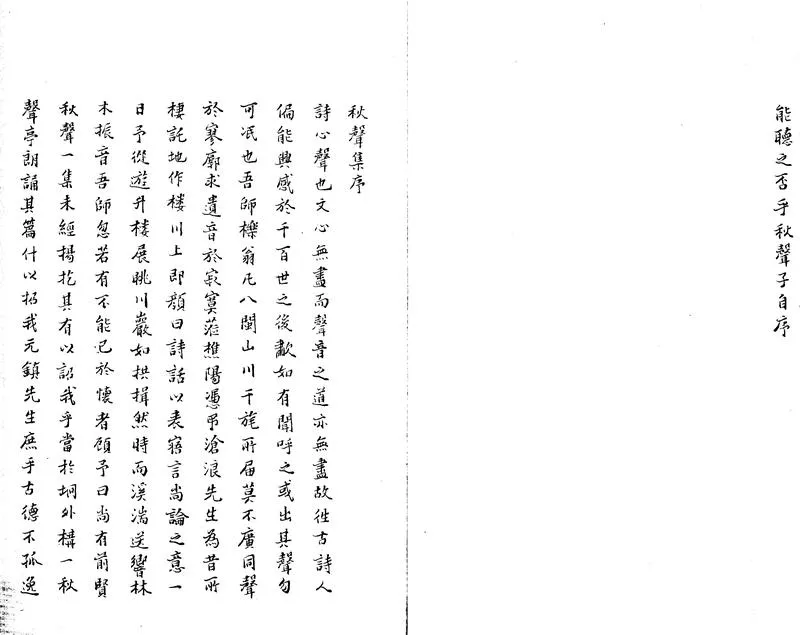 能聽之否乎秋聲子自序
秋聲集序
詩心聲也文心無盡而聲音之道亦無盡故徃古詩人
偏能興感於千百世之後歘如有聞呼之或出其聲勿
可泯也吾師櫟翁凡八閩山川干旄所届莫不廣同聲
於寥廓求遺音於寂寞蒞樵陽憑弔滄浪先生為昔所
棲託地作楼川上即顏曰詩話以表寤言尚論之意一
日予從遊升楼展眺川巖如拱揖然時而溪湍送響林
木振音吾師忽若有不能已於懷者顧予曰尚有前賢
秋聲一集未經揚扢其有以詔我乎當於垌外構一秋
聲亭朗誦其篇什以招我元鎮先生庶乎古德不孤逸